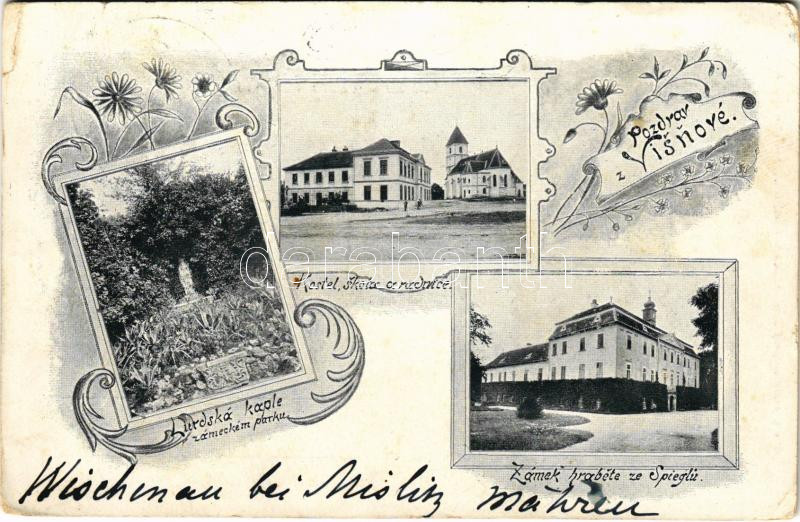 Pozdrav
z Višňové.
Kostel, škola a radnice.
Lurdská kaple
zámeckém parku.
Zámek hraběte ze Spieglů.
darabanth
Wischenau bei Mislitz Mähren